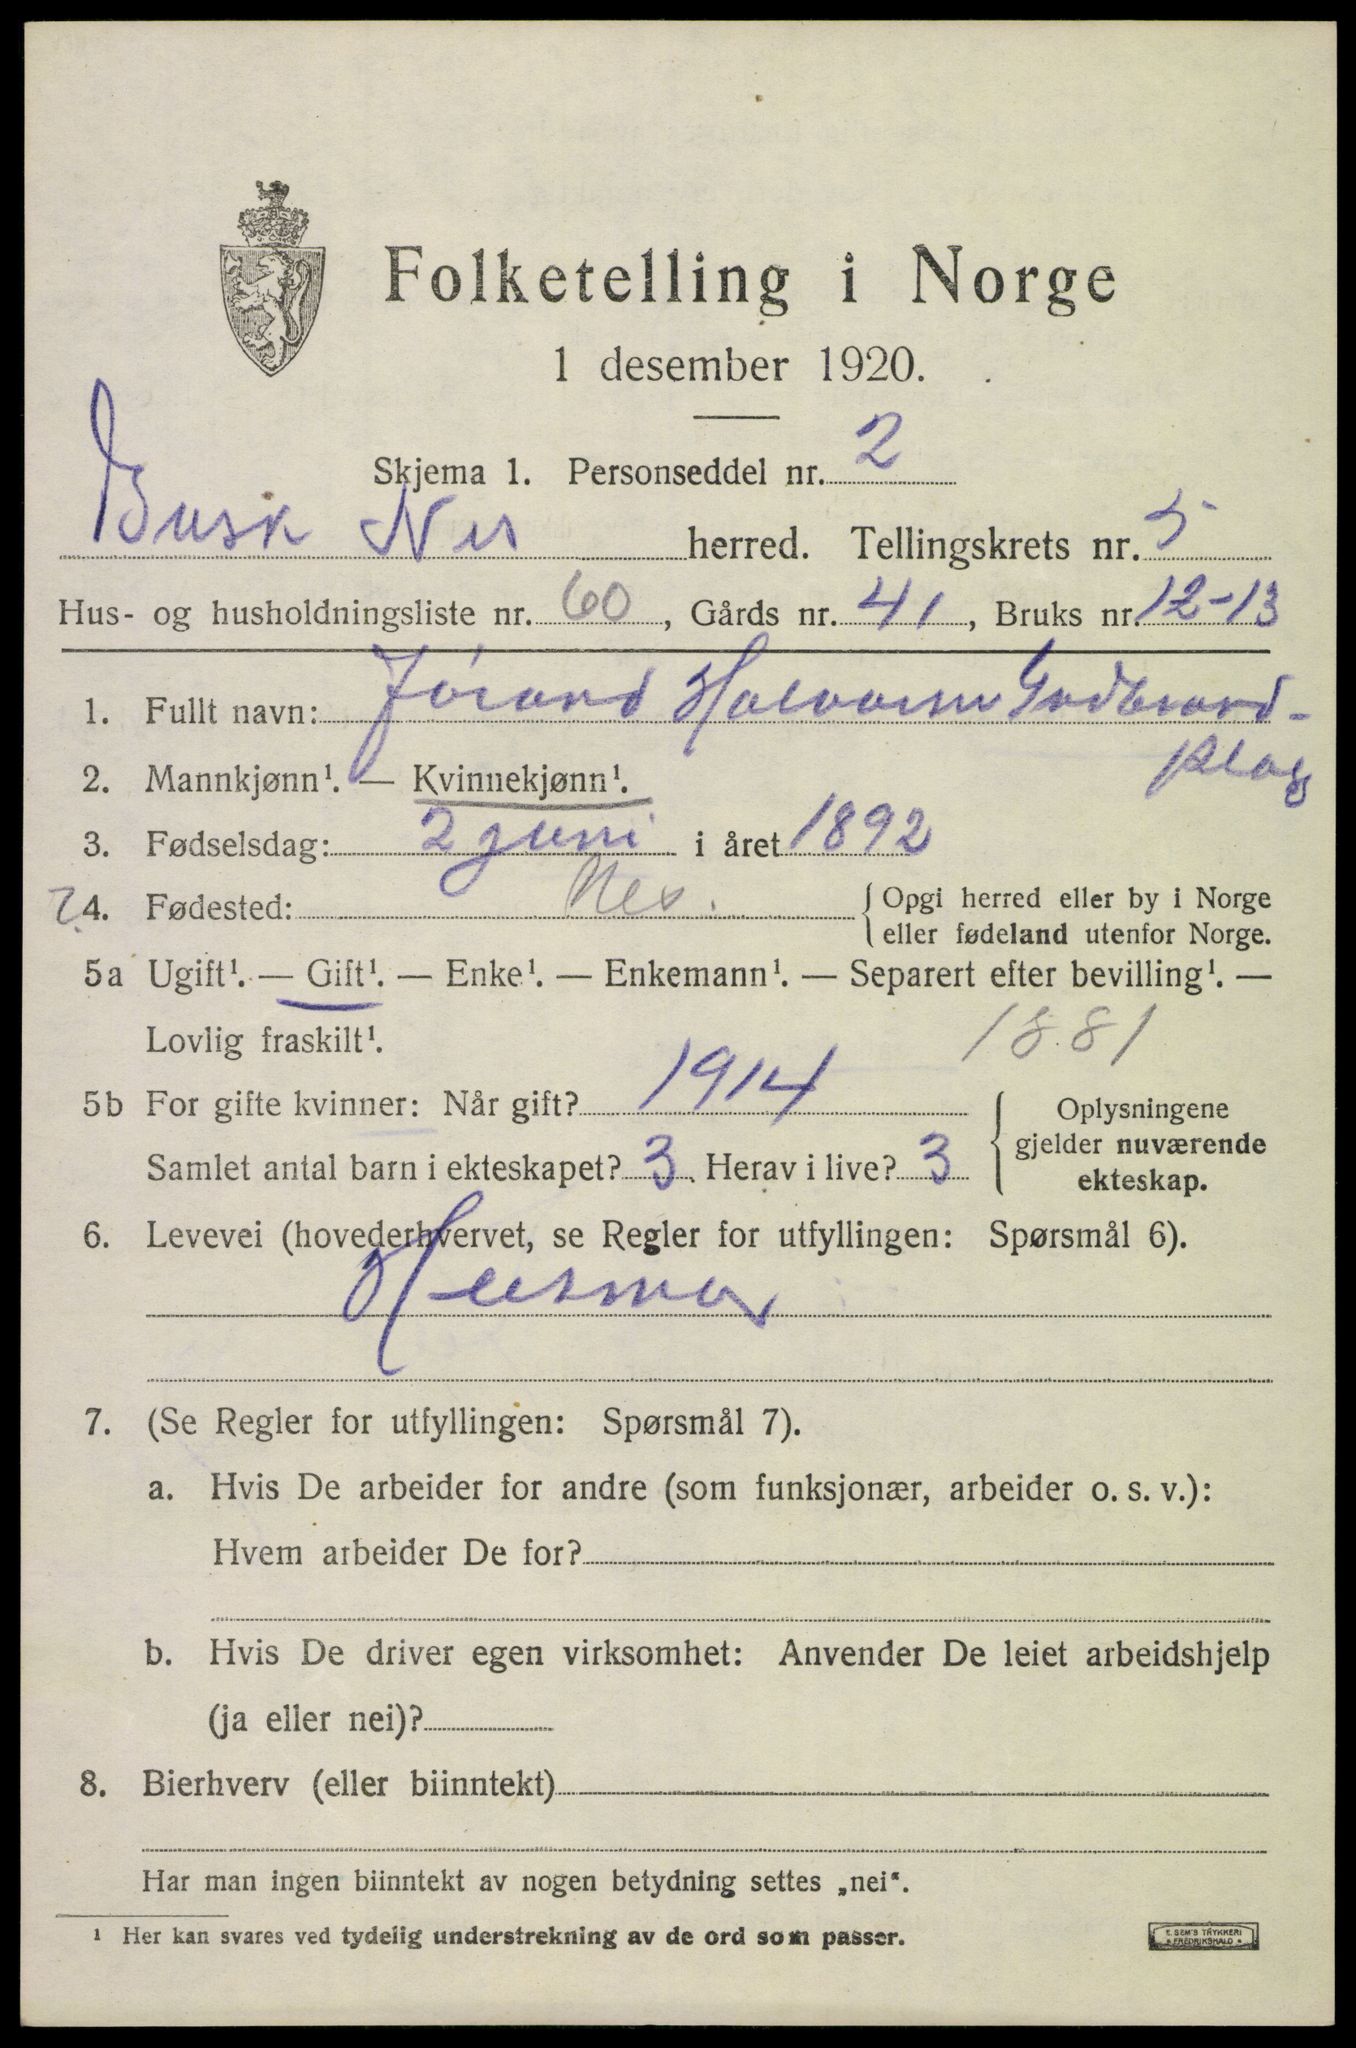 Folketelling i Norge
1 desember 1920.
Skjema 1. Personseddel nr. 2
Busk Nes herred. Tellingskrets nr. 5
Hus- og husholdningsliste nr. 60, Gårds nr. 41, Bruks nr. 12-13
1. Fullt navn: Jørand Halvorsen Gudbrand-
plag
2. Mannkjønn¹. — Kvinnekjønn¹.
3. Fødselsdag: 2 juni i året 1892
?4. Fødested: Nes. { Opgi herred eller by i Norge
eller fødeland utenfor Norge.
5a Ugift¹. — Gift¹. — Enke¹. — Enkemann¹. — Separert efter bevilling¹. —
Lovlig fraskilt¹. 1881
5b For gifte kvinner: Når gift? 1914
Samlet antal barn i ekteskapet? 3. Herav i live? 3
{ Oplysningene
gjelder nuværende
ekteskap.
6. Levevei (hovederhvervet, se Regler for utfyllingen: Spørsmål 6).
Husmor
7. (Se Regler for utfyllingen: Spørsmål 7).
a. Hvis De arbeider for andre (som funksjonær, arbeider o. s. v.):
Hvem arbeider De for?
b. Hvis De driver egen virksomhet: Anvender De leiet arbeidshjelp
(ja eller nei)?
8. Bierhverv (eller biinntekt)
Har man ingen biinntekt av nogen betydning settes „nei“.
¹ Her kan svares ved tydelig understrekning av de ord som passer.
E. SEM'S TRYKKERI
• FREDRIKSHALD •